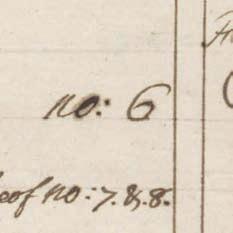 no: 6
eof no: 7. & 8.